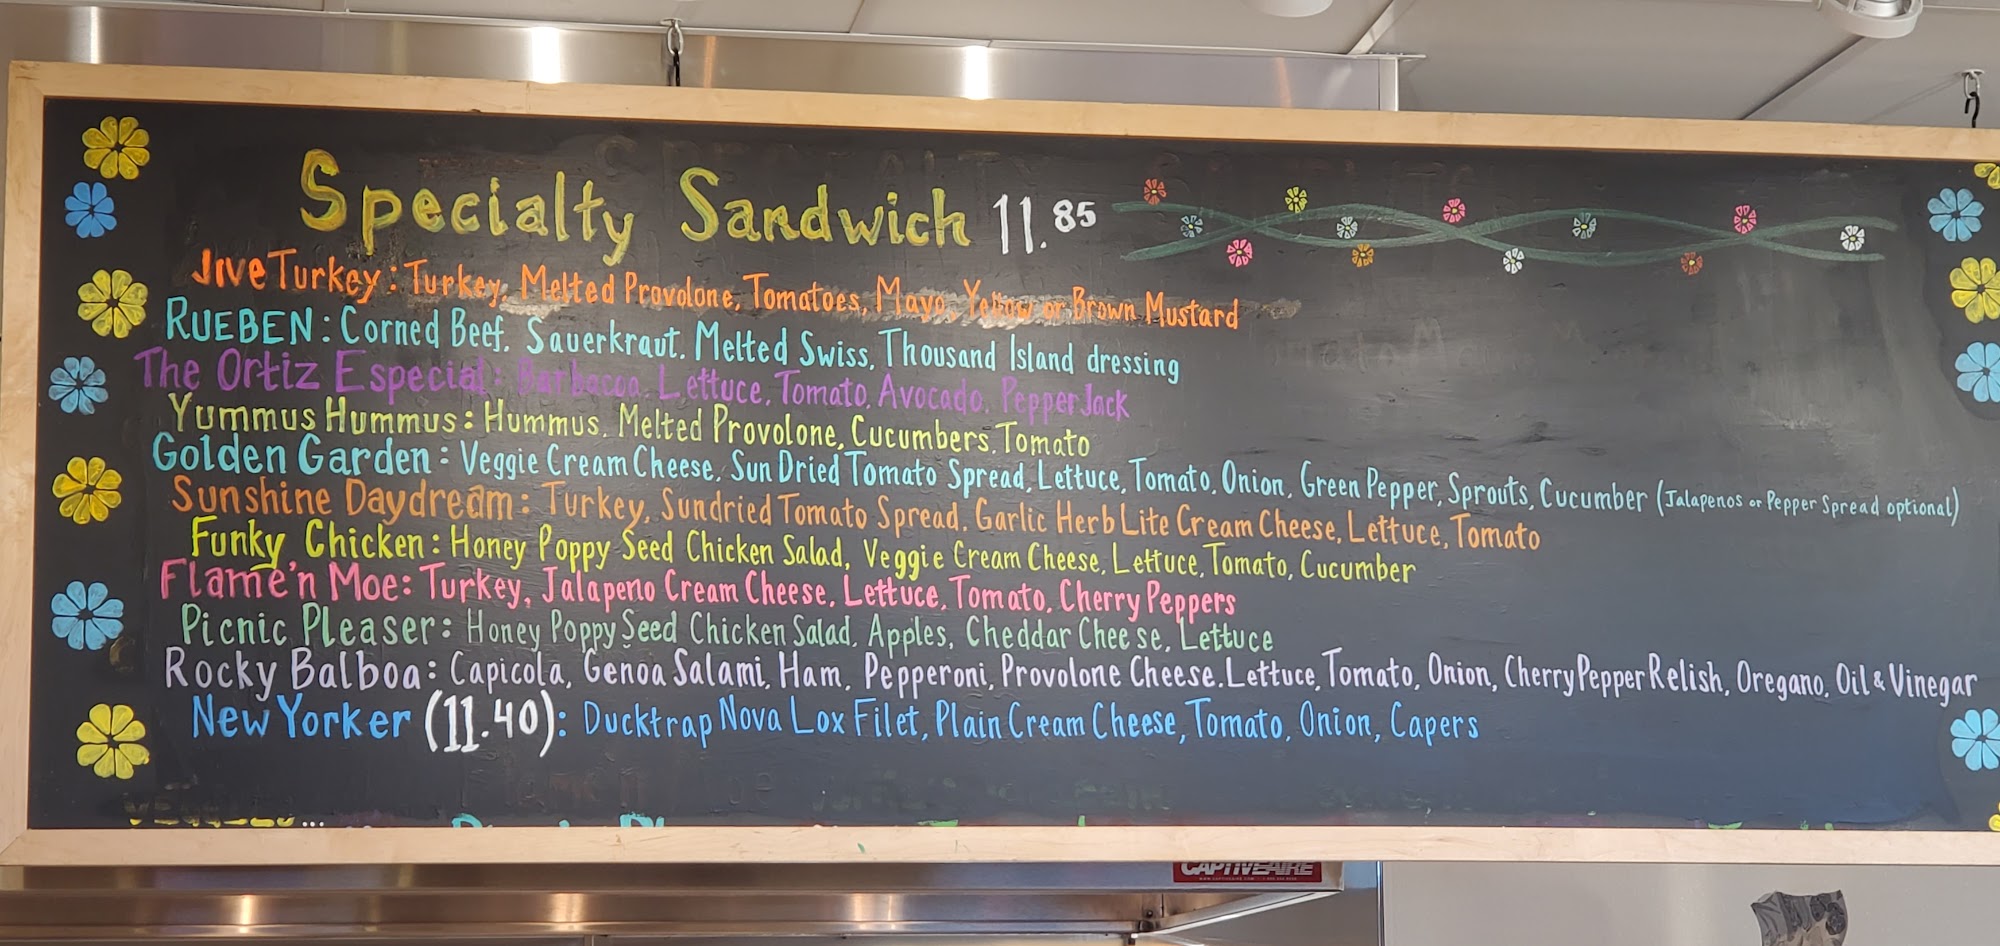 Specialty Sandwich 11.85
Jive Turkey: Turkey, Melted Provolone, Tomatoes, Mayo, Yellow or Brown Mustard
RUEBEN: Corned Beef, Sauerkraut, Melted Swiss, Thousand Island dressing
The Ortiz Especial: Barbacoa, Lettuce, Tomato, Avocado, Pepper Jack
Yummus Hummus: Hummus, Melted Provolone, Cucumbers, Tomato
Golden Garden: Veggie Cream Cheese, Sun Dried Tomato Spread, Lettuce, Tomato, Onion, Green Pepper, Sprouts, Cucumber (Jalapenos or Pepper Spread optional)
Sunshine Daydream: Turkey, Sundried Tomato Spread, Garlic Herb Lite Cream Cheese, Lettuce, Tomato
Funky Chicken: Honey Poppy Seed Chicken Salad, Veggie Cream Cheese, Lettuce, Tomato, Cucumber
Flame'n Moe: Turkey, Jalapeno Cream Cheese, Lettuce, Tomato, Cherry Peppers
Picnic Pleaser: Honey Poppy Seed Chicken Salad, Apples, Cheddar Cheese, Lettuce
Rocky Balboa: Capicola, Genoa Salami, Ham, Pepperoni, Provolone Cheese, Lettuce, Tomato, Onion, Cherry Pepper Relish, Oregano, Oil & Vinegar
New Yorker (11.40): Ducktrap Nova Lox Filet, Plain Cream Cheese, Tomato, Onion, Capers
CAPTIVEAIRE